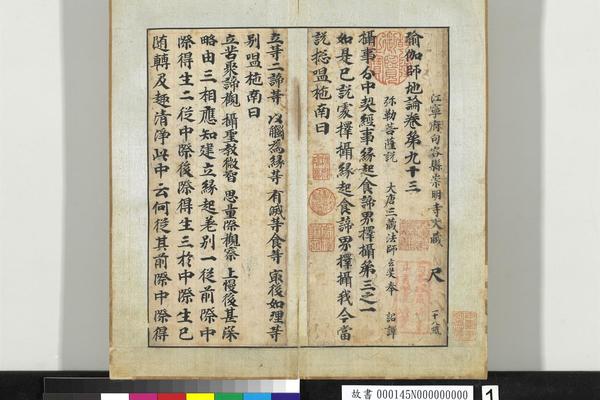 江寧府句容縣崇明寺大藏 尺 十紙
瑜伽師地論卷第九十三
彌勒菩薩說 大唐三藏法師玄奘奉 詔譯
攝事分中契經事緣起食諦界擇攝第三之一
如是已說處擇攝緣起食諦界擇攝我今當
說摠嗢柁南曰
立等二諦等 以觸為緣等 有滅等食等 㝡後如理等
別嗢柁南曰
立苦聚諦觀 攝聖教微智 思量際觀察 上慢後甚深
略由三相應知建立緣起差別一從前際中
際得生二從中際後際得生三於中際生已
随轉及趣清淨此中云何從其前際中際得
故書 000145N000000000
1